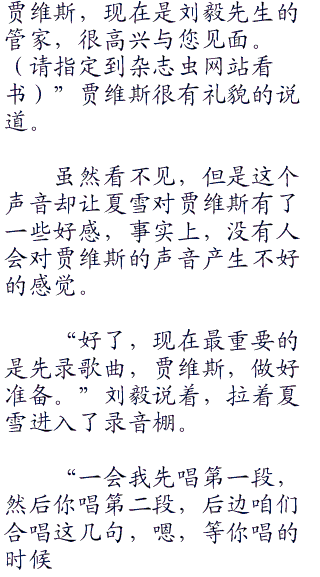 贾维斯，现在是刘毅先生的
管家，很高兴与您见面。
（请指定到杂志虫网站看
书）”贾维斯很有礼貌的说
道。
虽然看不见，但是这个
声音却让夏雪对贾维斯有了
一些好感，事实上，没有人
会对贾维斯的声音产生不好
的感觉。
“好了，现在最重要的
是先录歌曲，贾维斯，做好
准备。”刘毅说着，拉着夏
雪进入了录音棚。
“一会我先唱第一段，
然后你唱第二段，后边咱们
合唱这几句，嗯，等你唱的
时候